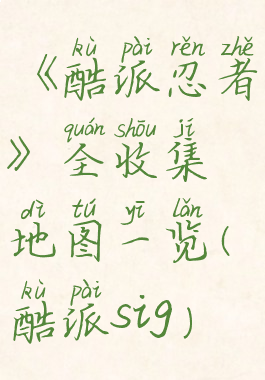 kù pài rěn zhě
《酷派忍者
quán shōu jí
》全收集
dì tú yī lǎn
地图一览(
kù pài
酷派sig)